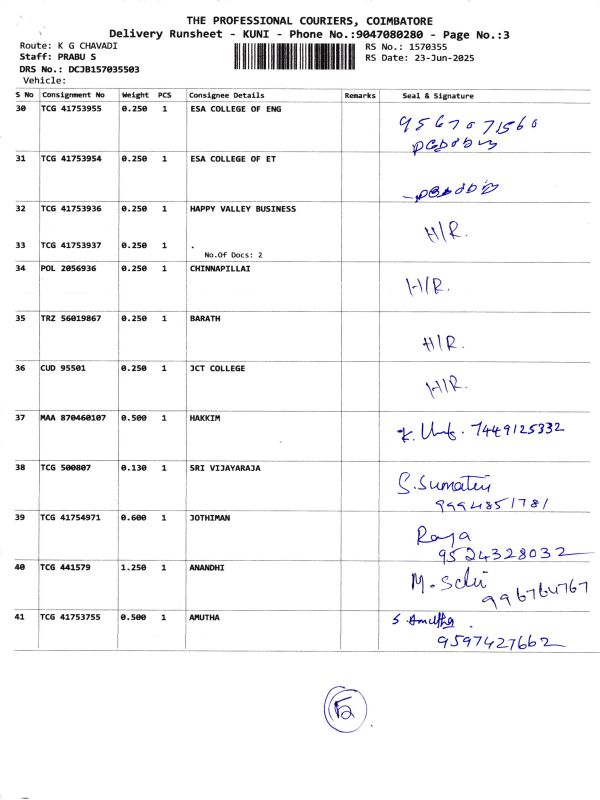 THE PROFESSIONAL COURIERS, COIMBATORE
Delivery Runsheet - KUNI - Phone No.:9047080280 - Page No.:3
Route: K G CHAVADI
RS No.: 1570355
Staff: PRABU S
RS Date: 23-Jun-2025
DRS No.: DCJB157035503
Vehicle:
S No Consignment No Weight PCS Consignee Details Remarks Seal & Signature
30 TCG 41753955 0.250 1 ESA COLLEGE OF ENG
9567071560
31 TCG 41753954 0.250 1 ESA COLLEGE OF ET
32 TCG 41753936 0.250 1 HAPPY VALLEY BUSINESS
H/R.
33 TCG 41753937 0.250 1 .
No.Of Docs: 2
34 POL 2056936 0.250 1 CHINNAPILLAI
H/R.
35 TRZ 56019867 0.250 1 BARATH
H/R.
36 CUD 95501 0.250 1 JCT COLLEGE
H/R.
37 MAA 870460107 0.500 1 HAKKIM
7449125332
38 TCG 500807 0.130 1 SRI VIJAYARAJA
S.Sumathi
9994851781
39 TCG 41754971 0.600 1 JOTHIMAN
Raja
9524328032
40 TCG 441579 1.250 1 ANANDHI
M.
996764767
41 TCG 41753755 0.500 1 AMUTHA
S Amutha
9597427662
12